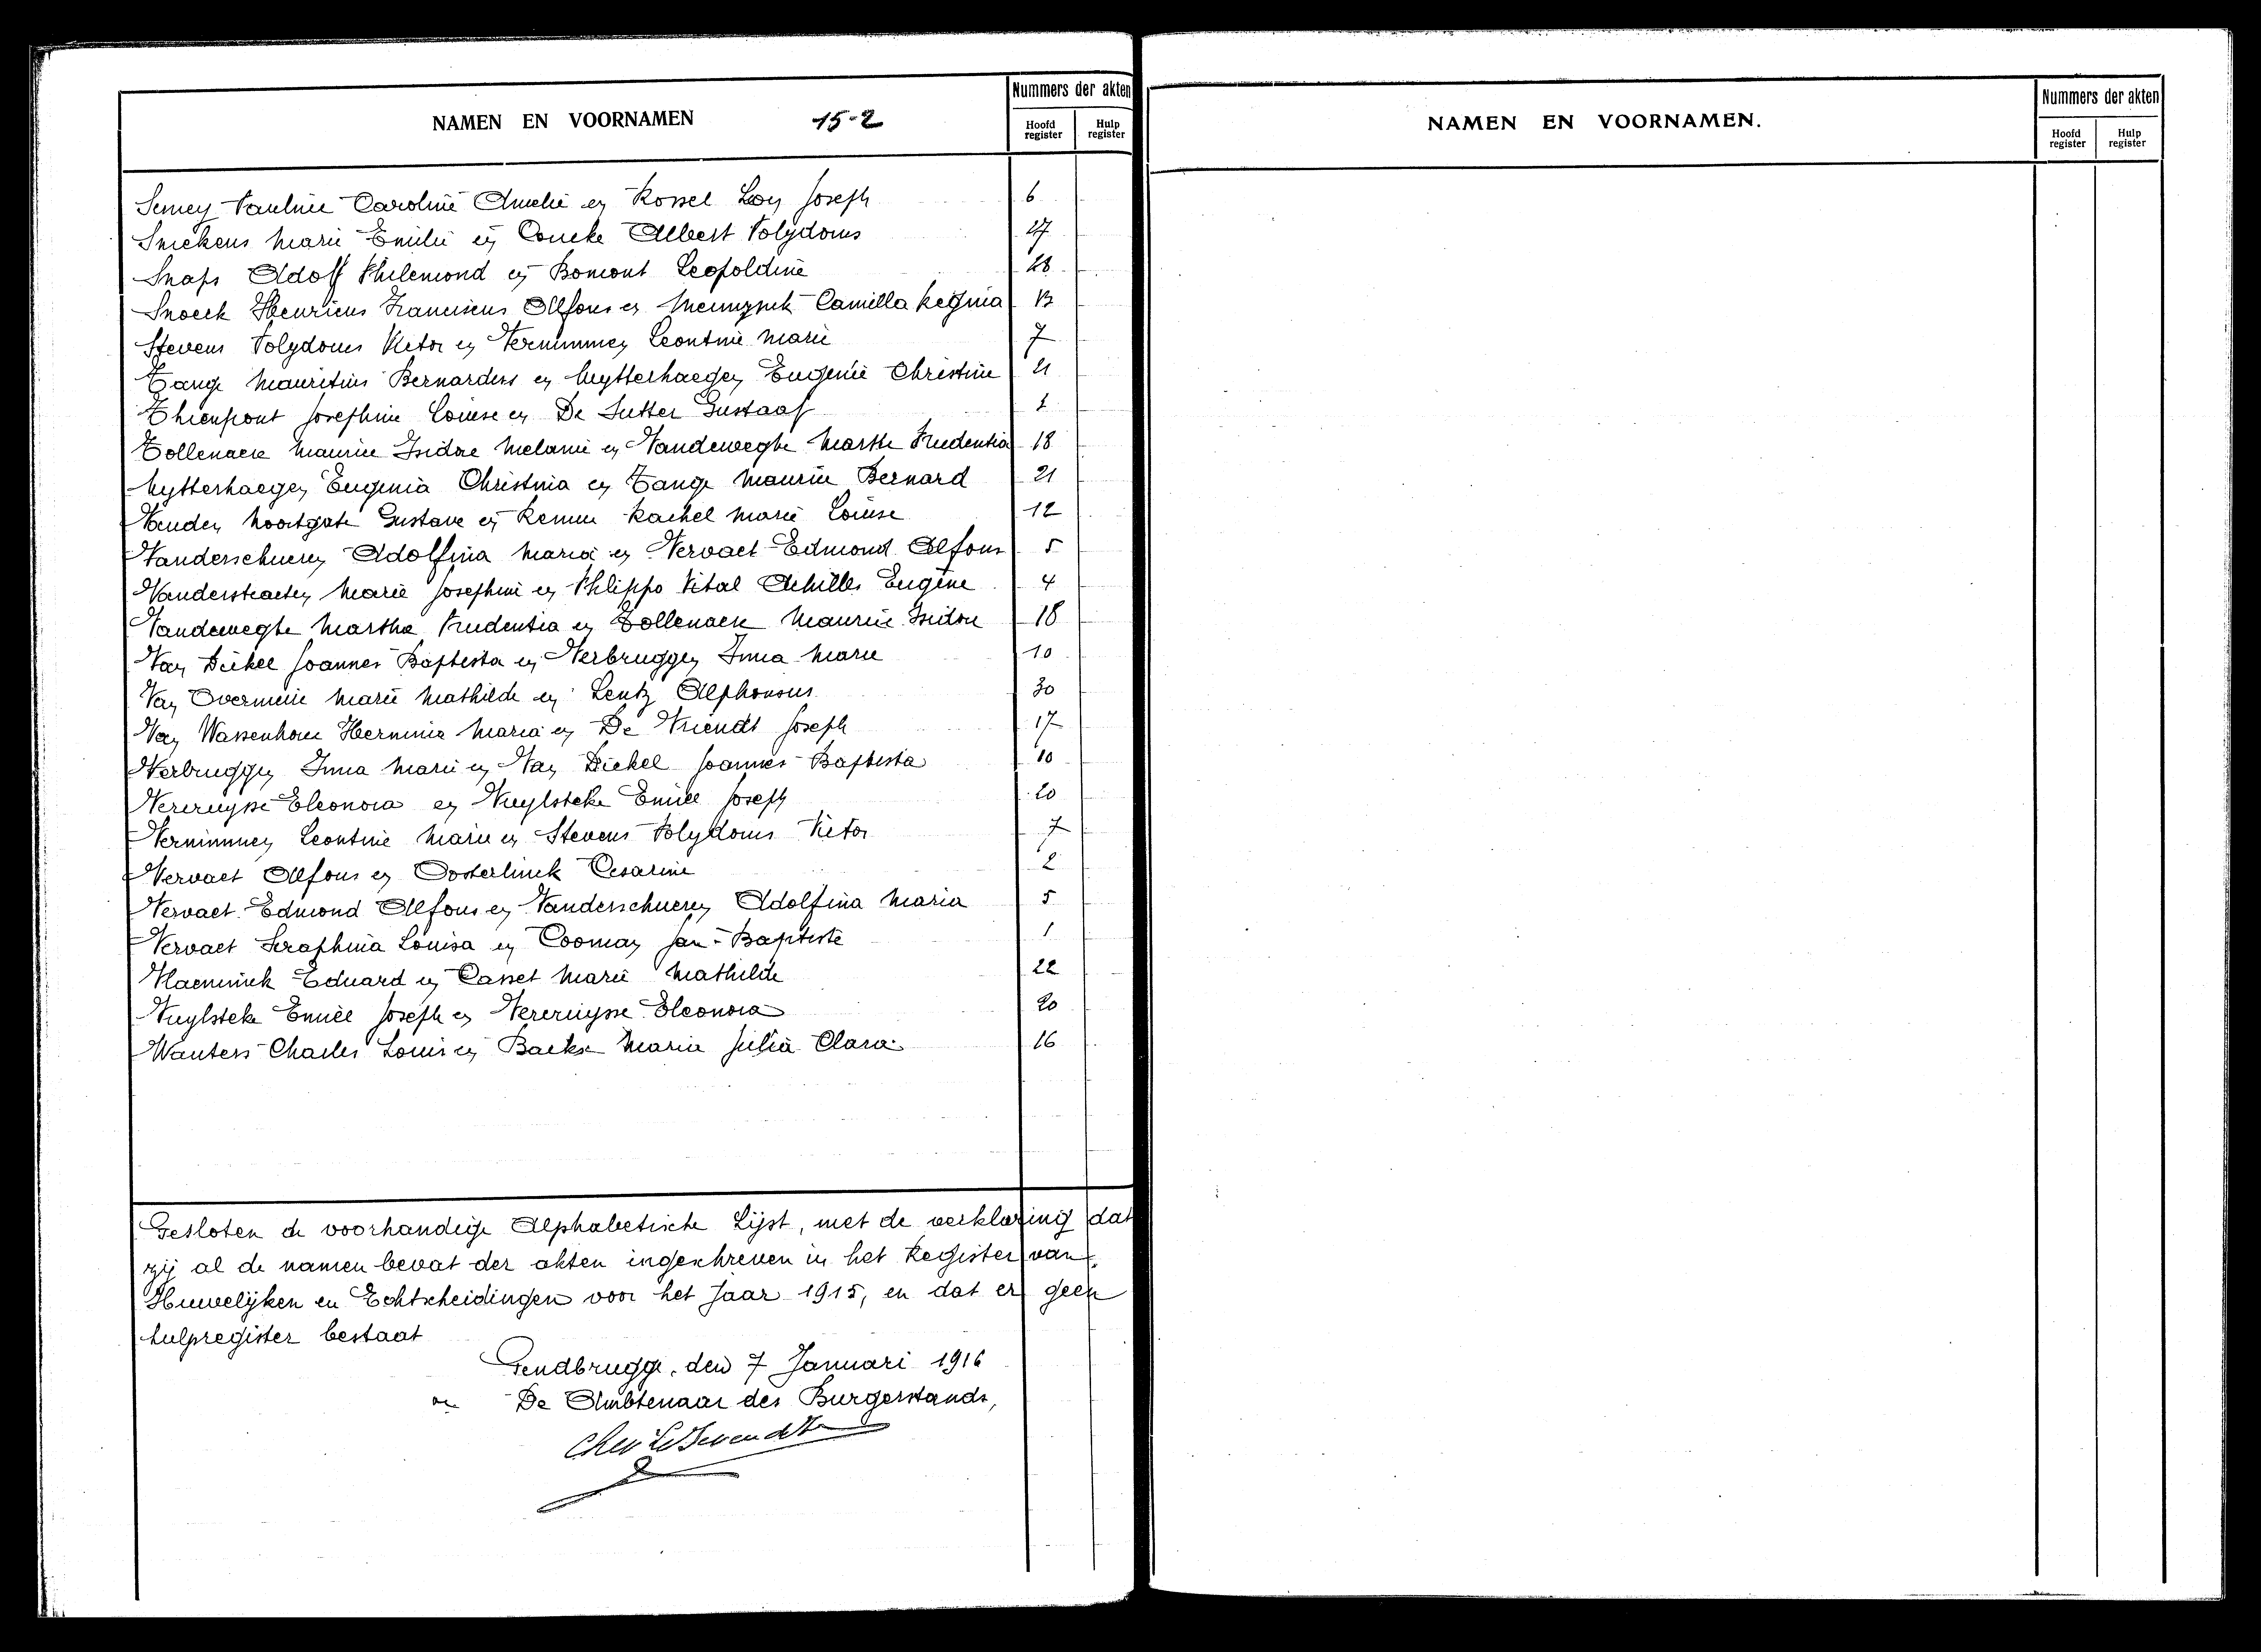 NAMEN EN VOORNAMEN 15-2
Nummers der akten
Hoofd register
Hulp register
Semey Pauline Caroline Amelie en Rossel Leon Joseph 6
Snickens Marie Emilie en Coucke Albert Polydorus 27
Snaps Adolf Philemond en Bomont Leopoldine 28
Snoeck Henricus Franciscus Alfons en Camilla Regina 13
Stevens Polydorus Victor en Vernimmen Leontine Marie 7
Tange Mauritius Bernardus en Uytterhaegen Eugenie Christine 21
Thienpont Josephine Louise en De Sutter Gustaaf
Tollenaere Maurice Isidore Melanie en Vandeweghe Martha Prudentia 18
Uytterhaegen Eugenia Christina en Tange Maurice Bernard 21
Vanden Noortgate Gustave en Remue Rachel Marie Louise 12
Vanderschueren Adolfina Maria en Vervaet Edmond Alfons 5
Vanderstraeten Marie Josephine en Philippo Vital Achilles Eugène 4
Vandewegte Martha Prudentia en Tollenaere Maurice Isidore 18
Van Dickel Joannes Baptista en Verbruggen Irma Marie 10
Van Overmeire Marie Mathilde en Lentz Alphonsus 30
Van Wassenhove Herminie Maria en De Vriendt Joseph 17
Verbruggen Irma Marie en Van Dickel Joannes Baptista 10
Vercruysse Eleonora en Vuylsteke Emiel Joseph 20
Vernimmen Leontine Marie en Stevens Polydorus Victor 7
Vervaet Alfons en Oosterlinck Cesarine 2
Vervaet Edmond Alfons en Vanderschueren Adolfina Maria 5
Vervaet Seraphina Louisa en Cooman Jan-Baptiste 1
Vlaeminck Eduard en Casset Marie Mathilde 22
Vuylsteke Emiel Joseph en Vercruysse Eleonora 20
Wauters Charles Louis en Backe Maria Julia Clara 16
Gesloten de voorhandige Alphabetische Lijst, met de verklaring dat
zij al de namen bevat der akten ingeschreven in het Register van
Huwelijken en Echtscheidingen voor het Jaar 1915, en dat er geen
hulpregister bestaat
Gendbrugge, den 7 Januari 1916
De Ambtenaar des Burgerstands,
NAMEN EN VOORNAMEN.
Nummers der akten
Hoofd register
Hulp register